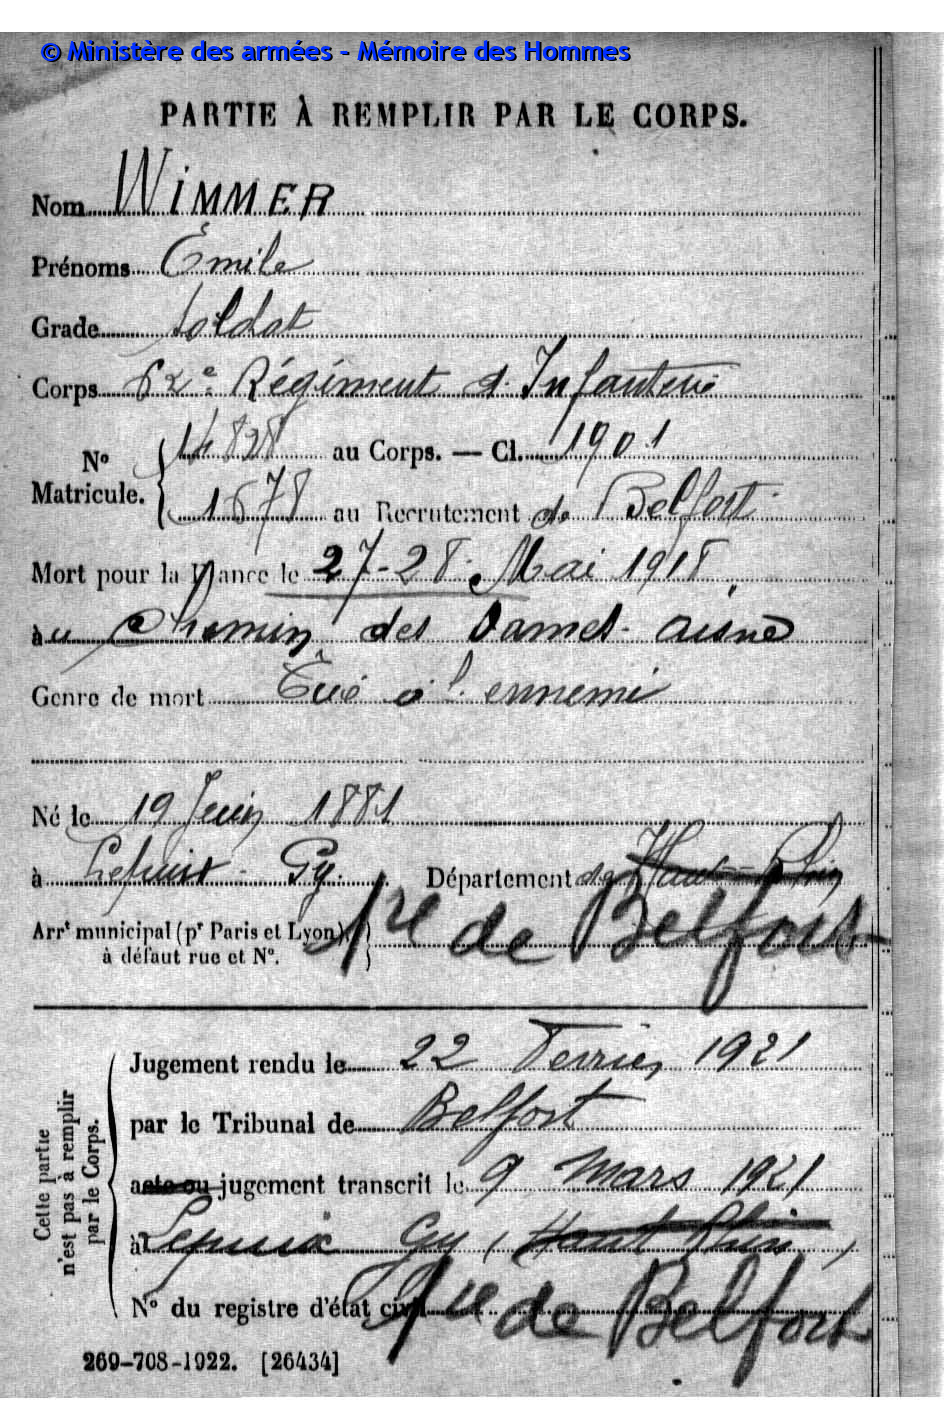 © Ministère des armées - Mémoire des Hommes
PARTIE À REMPLIR PAR LE CORPS.
Nom WIMMER
Prénoms Émile
Grade Soldat
Corps 62e Régiment d'Infanterie
No Matricule. 14828 au Corps. — Cl. 1901
1678 au Recrutement de Belfort
Mort pour la France le 27-28 Mai 1918
au Chemin des Dames - Aisne
Genre de mort Tué à l'ennemi
Né le 19 Juin 1881
à Lepuix - Gy. Département de Haut-Rhin
Arrt municipal (pr Paris et Lyon),
à défaut rue et No.
rre de Belfort
Cette partie n'est pas à remplir par le Corps.
Jugement rendu le 22 Février 1921
par le Tribunal de Belfort
acte ou jugement transcrit le 9 Mars 1921
à Lepuix Gy (Haut Rhin)
No du registre d'état civil rre de Belfort
269-708-1922. [26434]